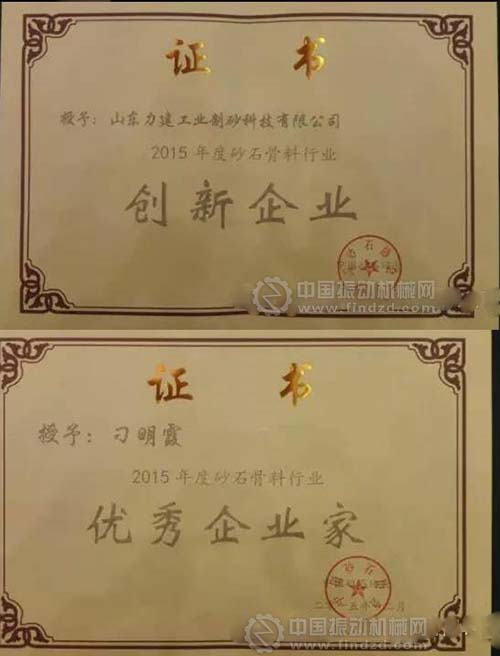 证 书
授予：山东力建工业制砂科技有限公司
2015年度砂石骨料行业
创新企业
中国振动机械网
www.findzd.com
证 书
授予：刁明霞
2015年度砂石骨料行业
优秀企业家
中国振动机械网
www.findzd.com